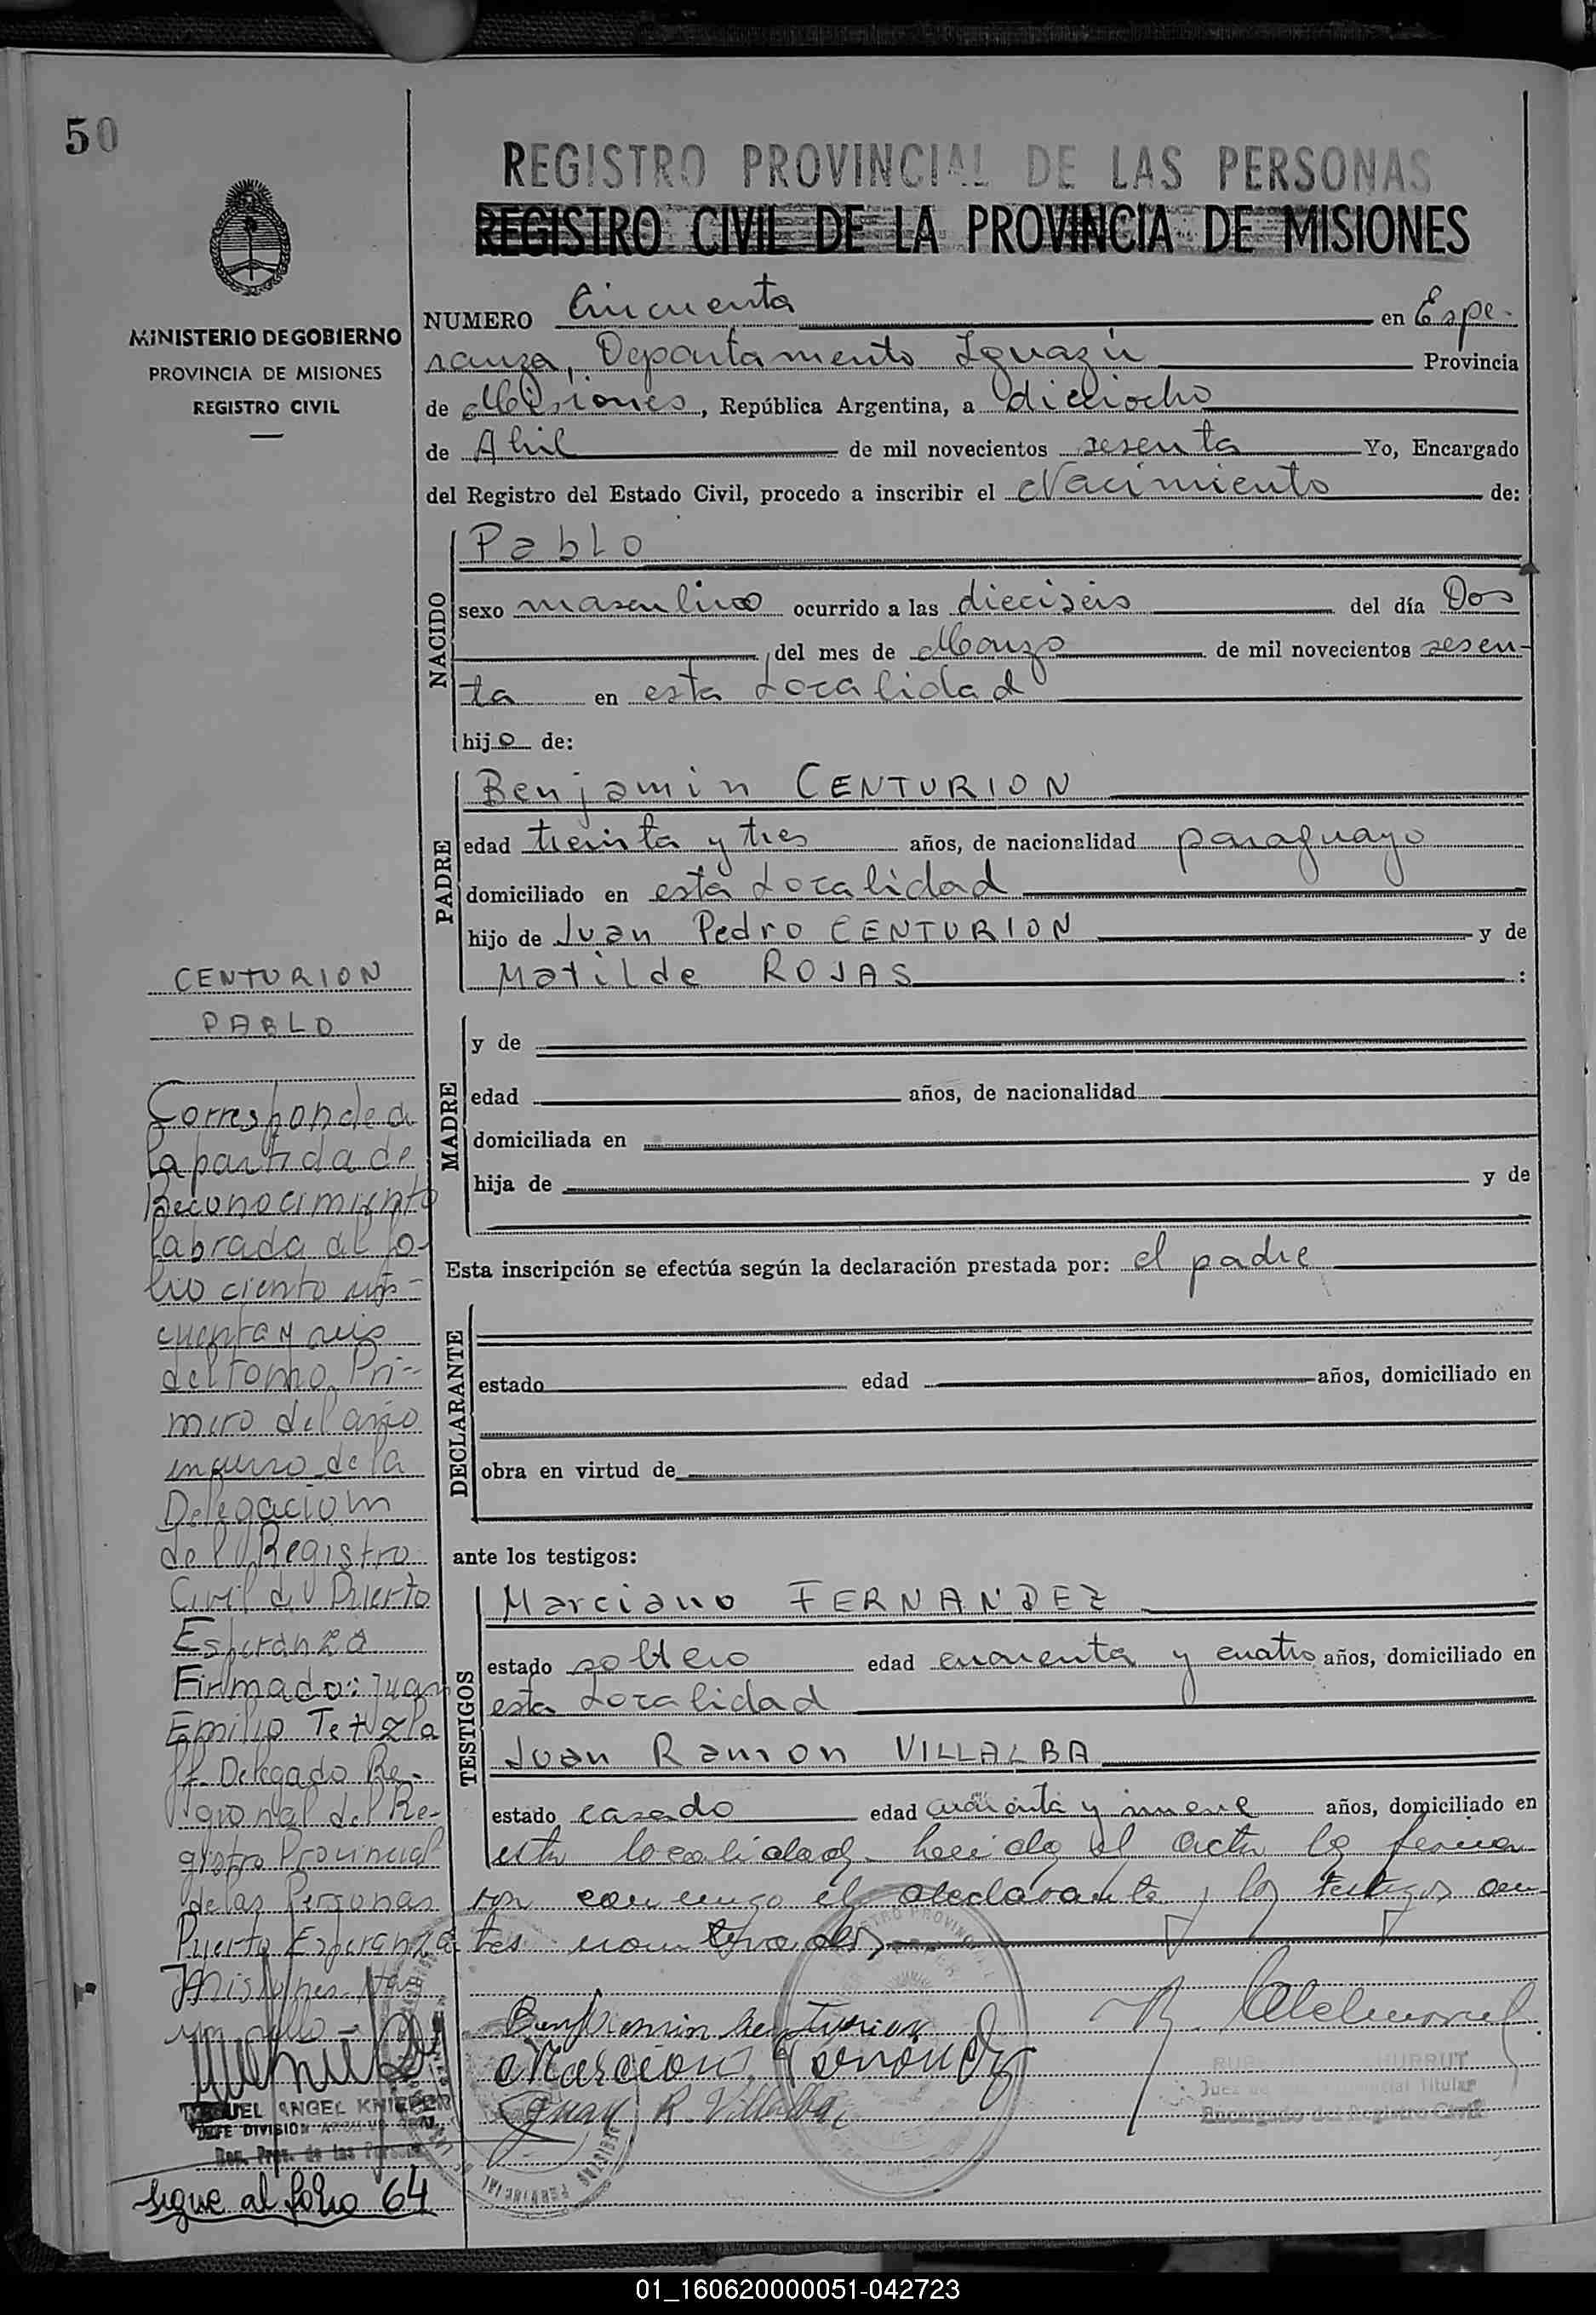 50
REGISTRO PROVINCIAL DE LAS PERSONAS
REGISTRO CIVIL DE LA PROVINCIA DE MISIONES
MINISTERIO DE GOBIERNO
PROVINCIA DE MISIONES
REGISTRO CIVIL
NUMERO Cincuenta en Espe-
ranza, Departamento Iguazú Provincia
de Misiones, República Argentina, a dieciocho
de Abril de mil novecientos sesenta Yo, Encargado
del Registro del Estado Civil, procedo a inscribir el Nacimiento de:
NACIDO
Pablo
sexo masculino ocurrido a las dieciseis del día Dos
del mes de Marzo de mil novecientos sesen-
ta en esta Localidad
hijo de:
PADRE
Benjamin CENTURION
edad treinta y tres años, de nacionalidad paraguayo
domiciliado en esta Localidad
hijo de Juan Pedro CENTURION y de
Matilde ROJAS :
MADRE
y de
edad años, de nacionalidad
domiciliada en
hija de y de
Esta inscripción se efectúa según la declaración prestada por: el padre
DECLARANTE
estado edad años, domiciliado en
obra en virtud de
ante los testigos:
TESTIGOS
Marciano FERNANDEZ
estado soltero edad cuarenta y cuatro años, domiciliado en
esta Localidad
Juan Ramon VILLALBA
estado casado edad cuarenta y nueve años, domiciliado en
esta localidad. leida el acta la firma
ron conmigo el declarante y los testigos an-
tes nombrados
Benjamin Centurion
Marciano Fernandez
Juan R. Villalba
Titular
Encargado del Registro Civil
CENTURION
PABLO
Corresponde a
la partida de
Reconocimiento
labrada al fo-
lio ciento cin-
cuenta y seis
del tomo Pri-
mero del año
en curso de la
Delegacion
del Registro
Civil de Puerto
Esperanza
Firmado: Juan
Emilio Tetzla
ff. Delegado Re-
gional del Re-
gistro Provincial
de las Personas
Puerto Esperanza
Misiones. Hay
un sello -
MIGUEL ANGEL KNIEPER
JEFE DIVISION ARCHIVO GRAL.
Reg. Prov. de las Personas
Sigue al folio 64
01_160620000051-042723